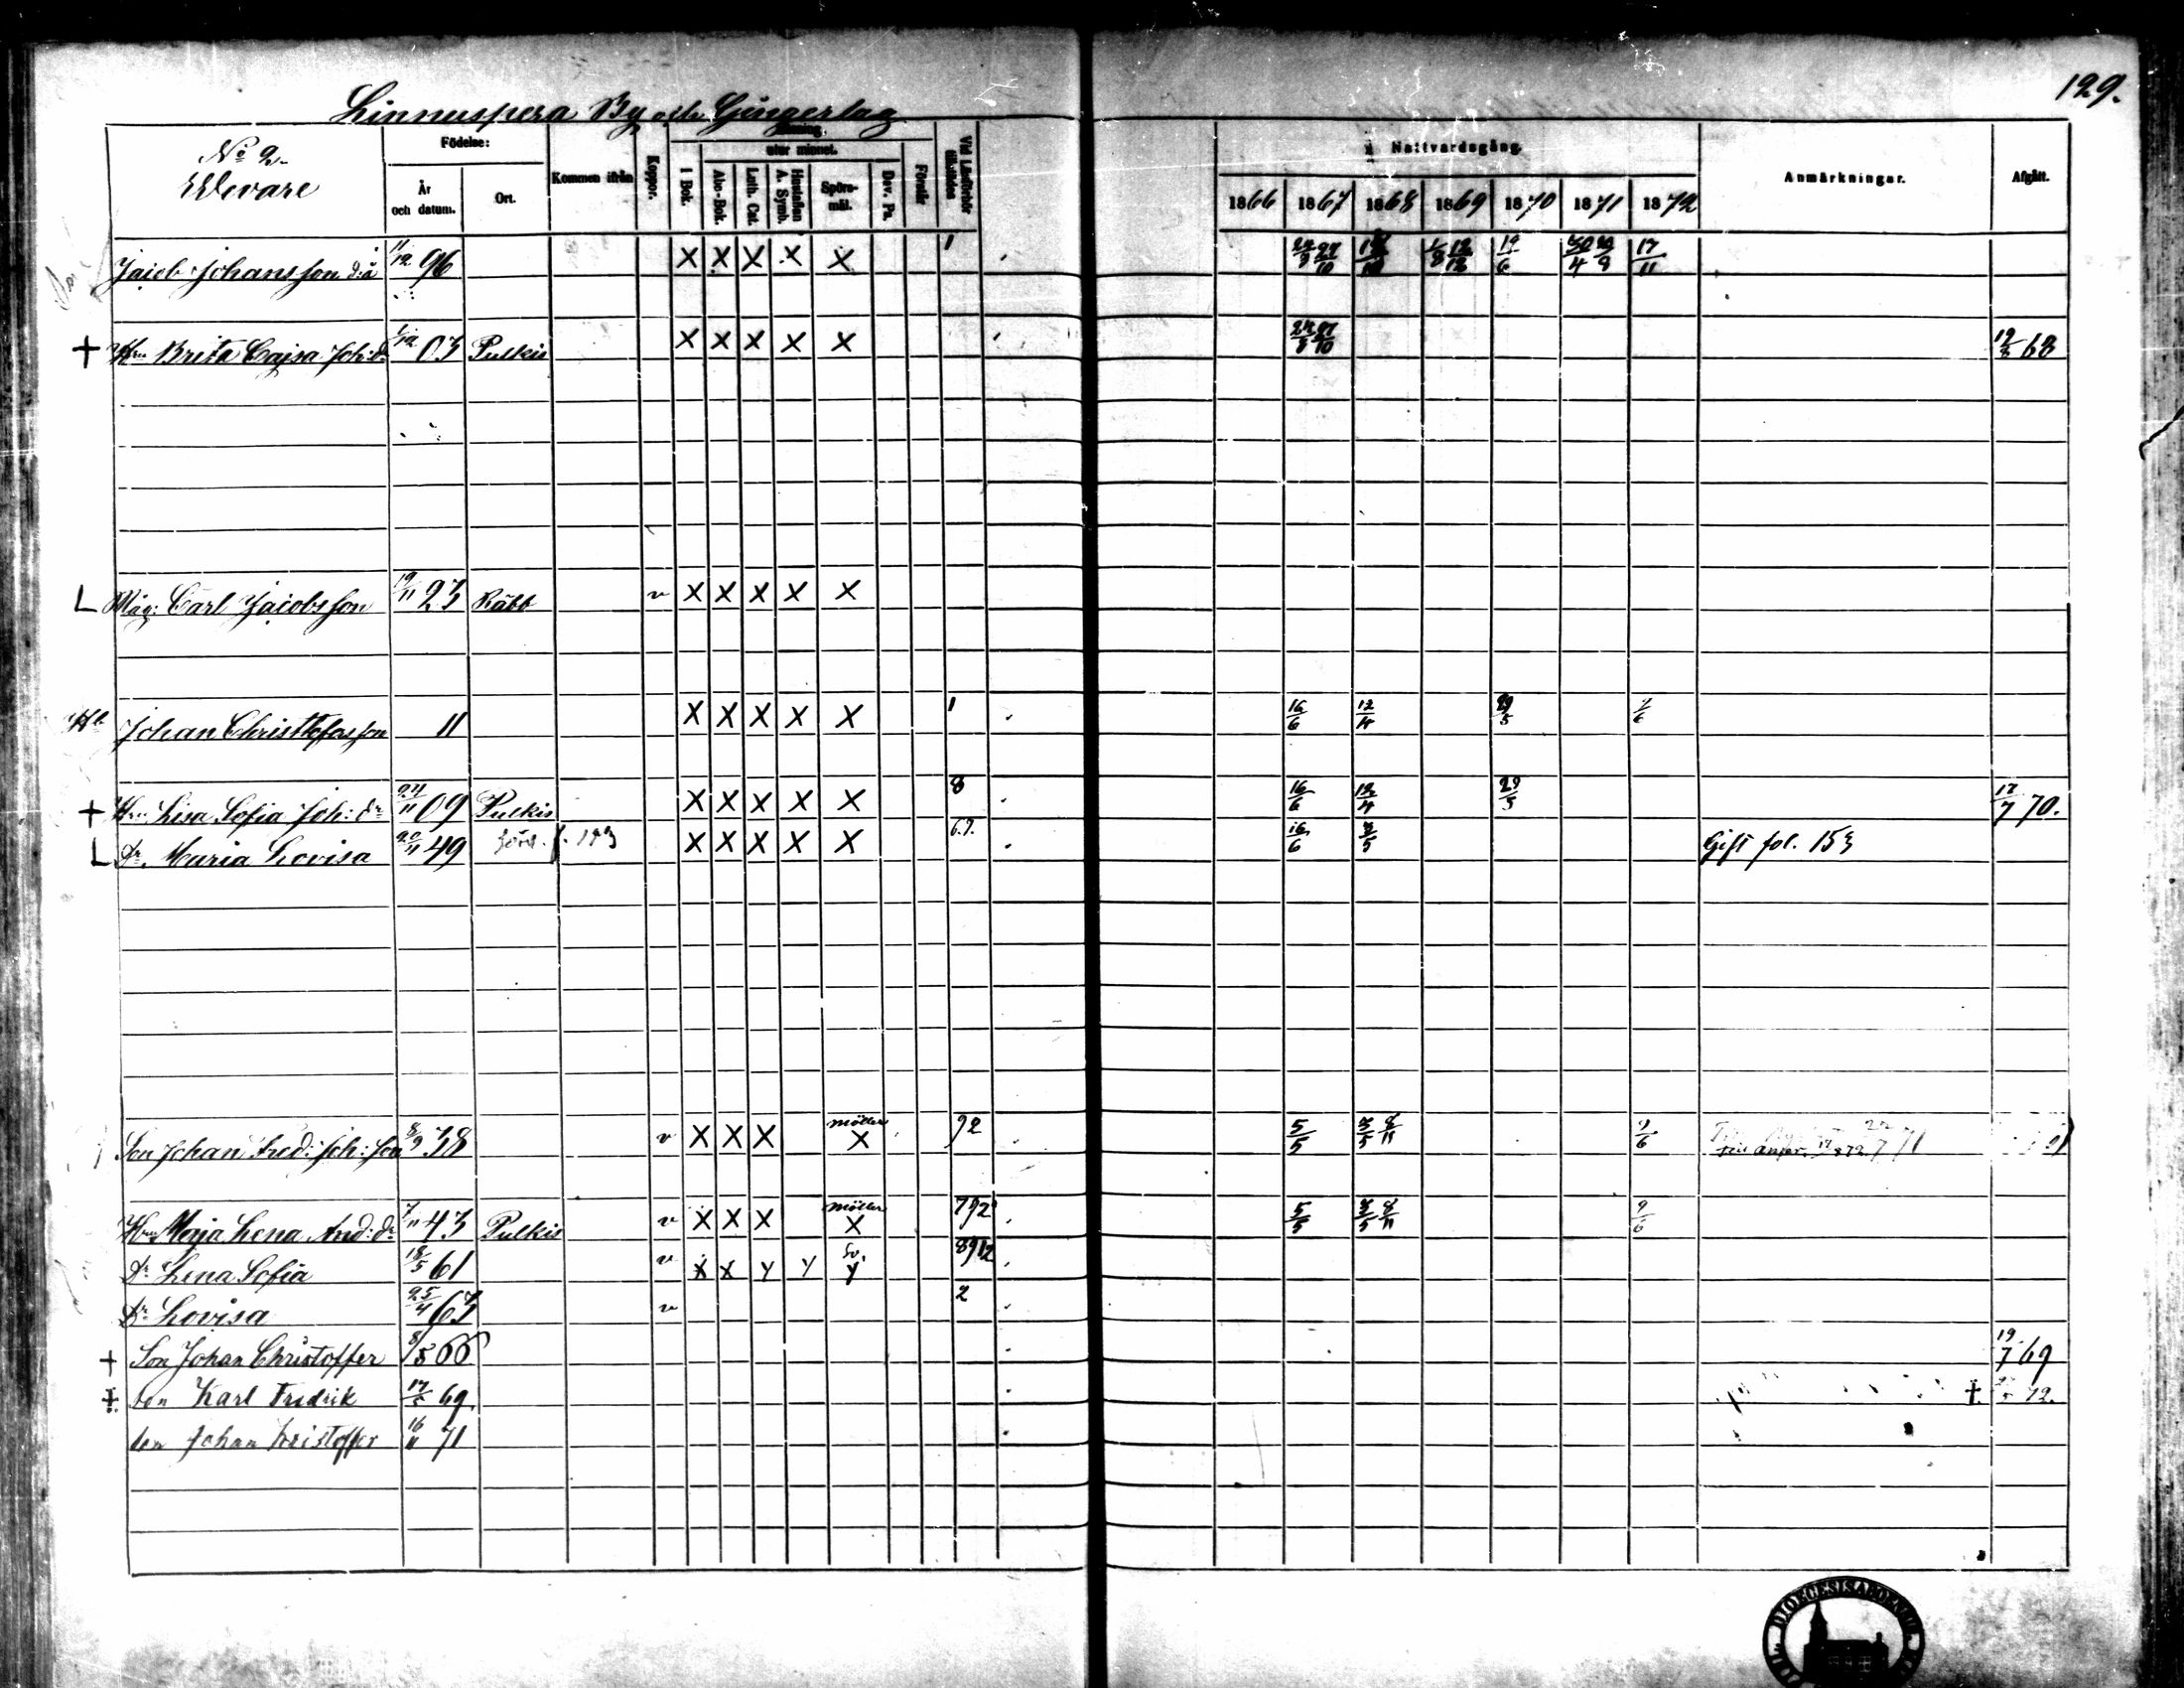 129.
Linnuspera By och Gingerlag
No 2.
Födelse: År och datum. Ort. Kommen ifrån Koppor. Läsning. I Bok. utur minnet. Abc-Bok. Luth. Cat. Hustaflan A. Symb. Spörs-mål. Dav. Ps. Förstår Vid Läsförhör tillstädes Nattvardsgång. 1866 1867 1868 1869 1870 1871 1872 Anmärkningar. Afgått.
Jacob Johansson d:ä 11/12 96 X X X X X 1 12/6 17/11
+ Hru Brita Cajsa Joh:dr 1/12 03 Pulkis X X X X X 12/8 68
L Måg: Carl Jacobsson 19/11 23 Räbb v X X X X X
Johan Christoffersson 11 X X X X X 1 16/6 12/4 29/5
+ Hru Lisa Sofia Joh:dr 24/11 09 Pulkis X X X X X 8 16/6 12/4 29/5 17/7 70.
L Dr. Maria Lovisa 20/11 49 X X X X X 6.7. 16/6 3/5 Gift fol. 153
Son Johan Fred: Joh:son 8/9 38 v X X X möller X 92 5/5 3/5 8/11 9/6
Hru Maja Lena And:dr 7/11 43 Pulkis v X X X möller X 792 5/5 3/5 8/11 9/6
Dr Lena Sofia 18/5 61 v X X Y Y Y 8912
Dr Lovisa 25/4 63 v 2
+ Son Johan Christoffer 8/5 66 19/7 69
+ Son Karl Fredrik 17/5 69. † 72.
Son Johan Kristoffer 16/11 71
DIOECESIS ABOENSIS